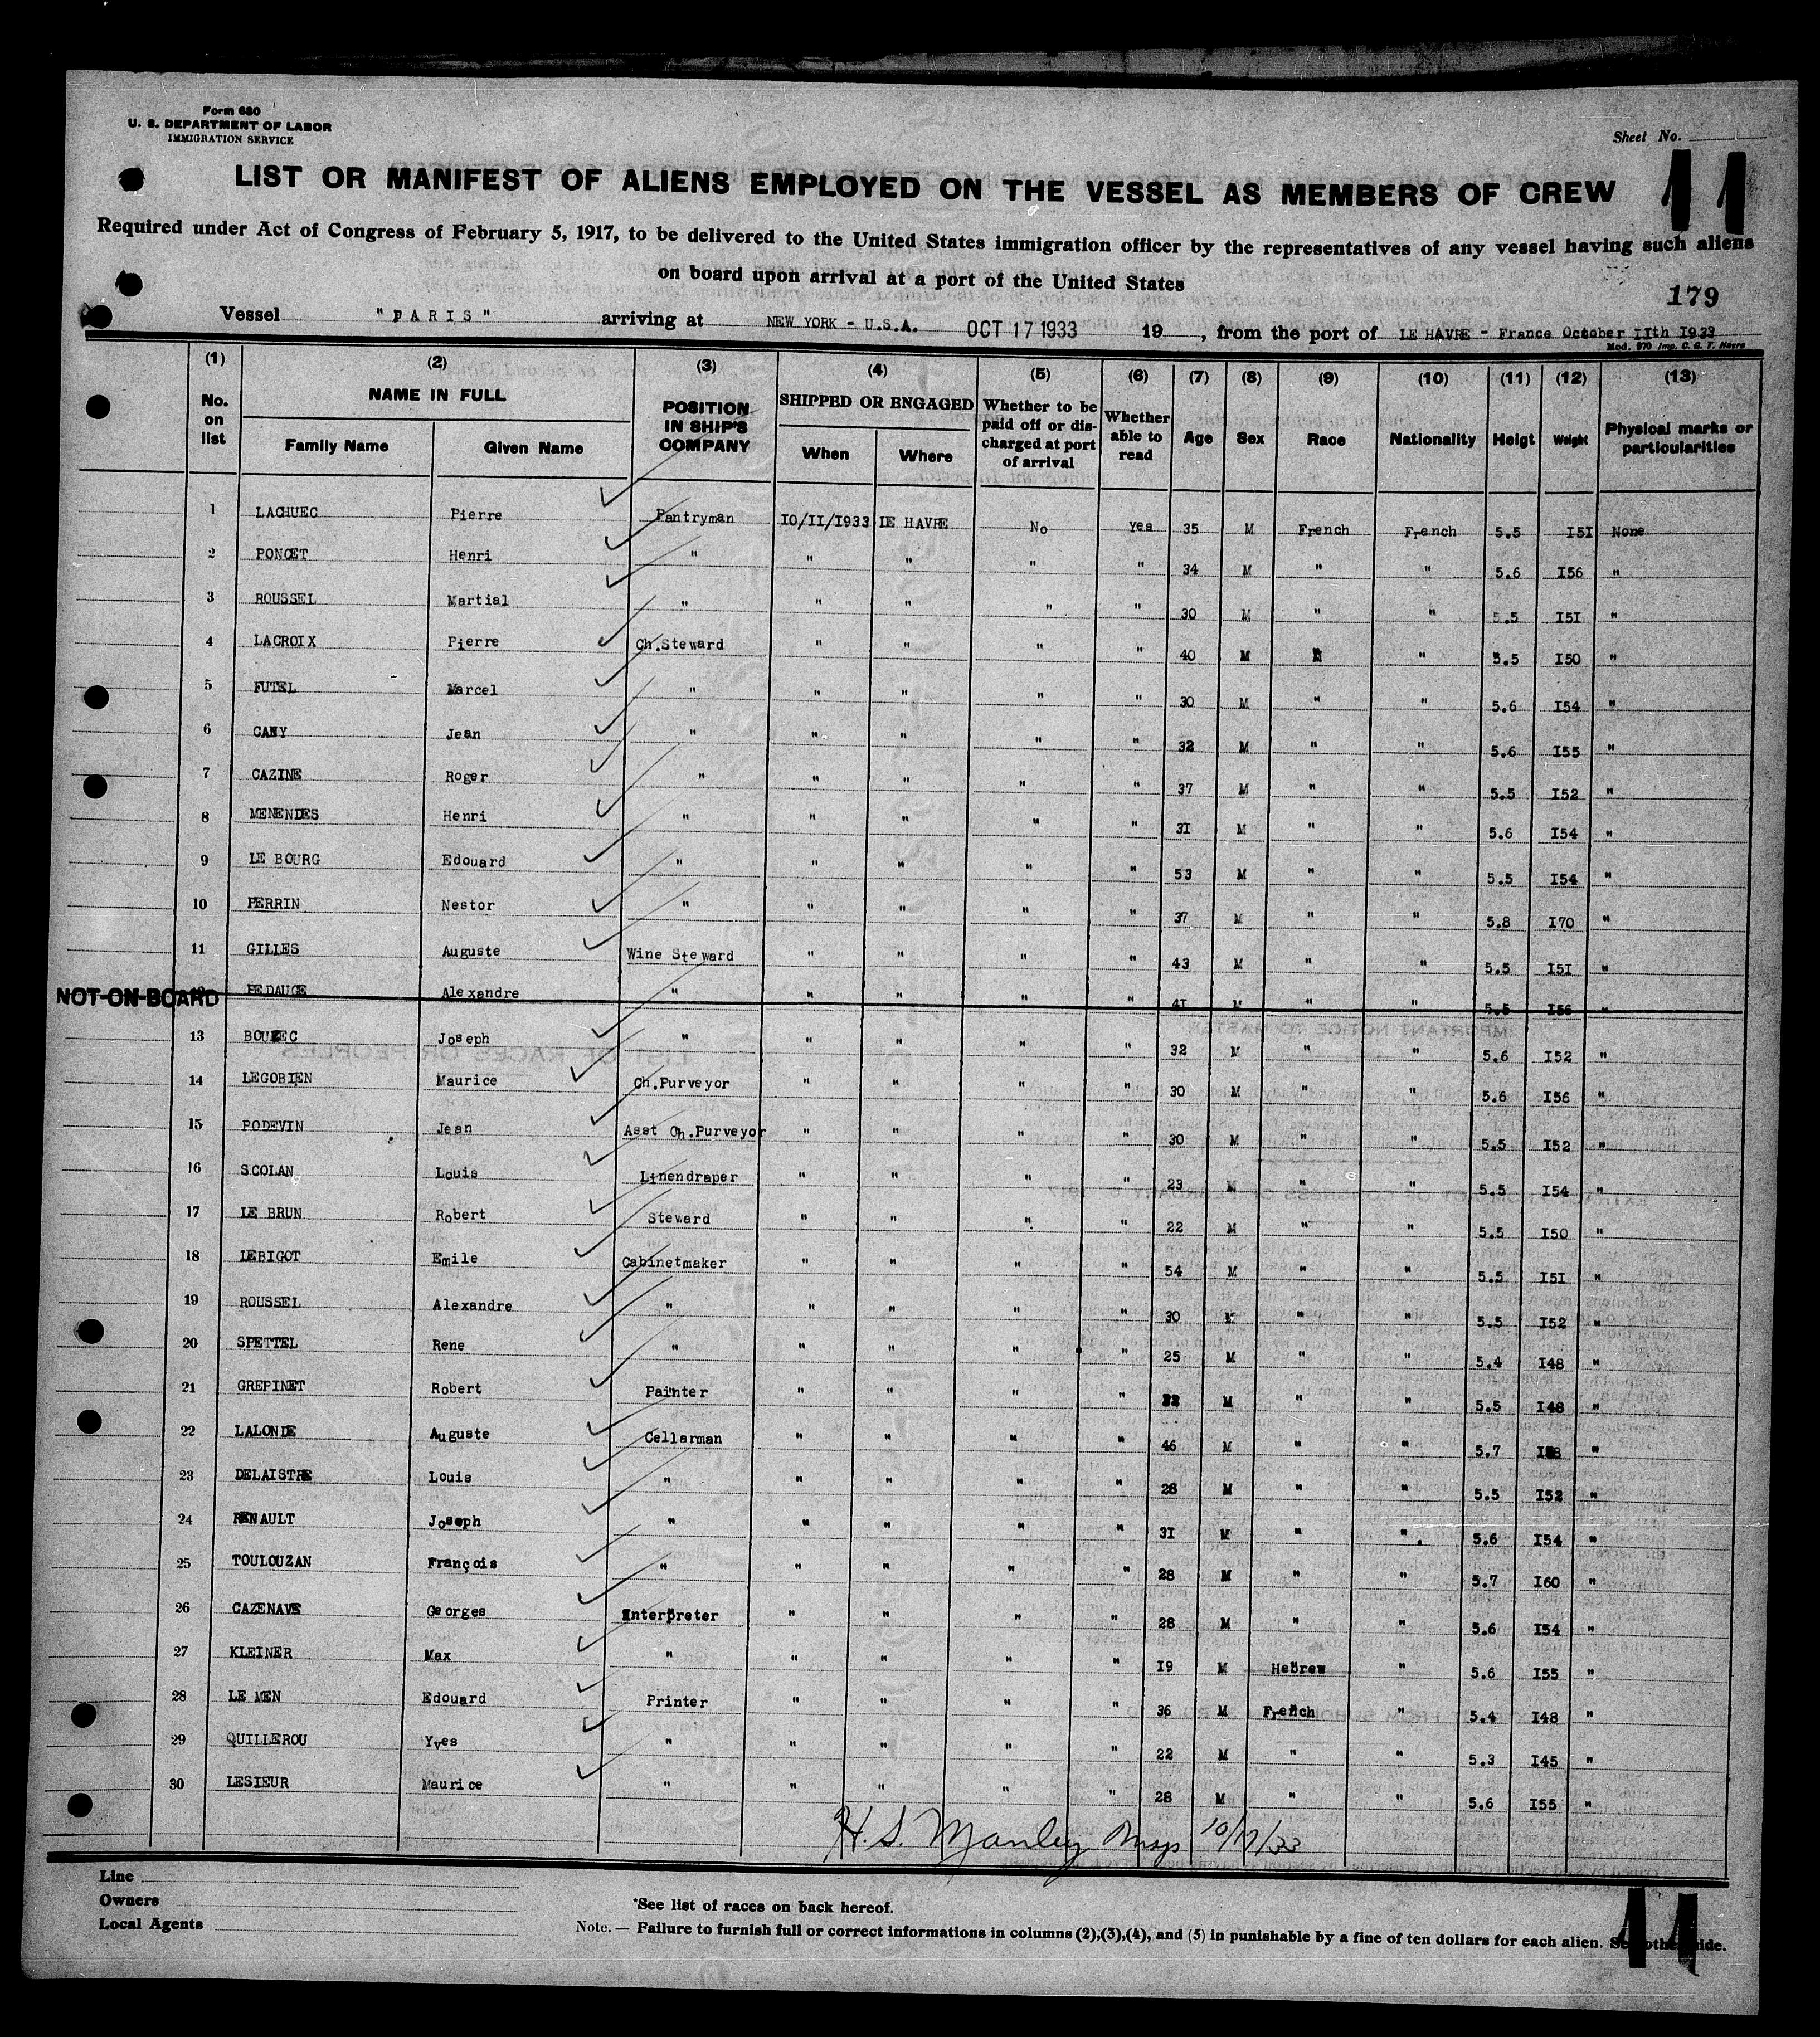 Form 680
U. S. DEPARTMENT OF LABOR
IMMIGRATION SERVICE
Sheet No.
11
LIST OR MANIFEST OF ALIENS EMPLOYED ON THE VESSEL AS MEMBERS OF CREW
Required under Act of Congress of February 5, 1917, to be delivered to the United States immigration officer by the representatives of any vessel having such aliens
on board upon arrival at a port of the United States
179
Vessel " PARIS " arriving at NEW YORK - U.S.A. OCT 17 1933 19 , from the port of LE HAVRE - France October IIth I933
Mod. 970 Imp. C. G. T. Havre
(1) (2) (3) (4) (5) (6) (7) (8) (9) (10) (11) (12) (13)
No. on list NAME IN FULL Family Name Given Name POSITION IN SHIP'S COMPANY SHIPPED OR ENGAGED When Where Whether to be paid off or discharged at port of arrival Whether able to read Age Sex Race Nationality Heigt Weight Physical marks or particularities
1 LACHUEC Pierre Pantryman IO/II/I933 LE HAVRE No yes 35 M French French 5.5 I5I None
2 PONCET Henri " " " " " 34 M " " 5.6 I56 "
3 ROUSSEL Martial " " " " " 30 M " " 5.5 I5I "
4 LACROIX Pierre Ch.Steward " " " " 40 M " " 5.5 I50 "
5 FUTEL Marcel " " " " " 30 M " " 5.6 I54 "
6 CANY Jean " " " " " 32 M " " 5.6 I55 "
7 CAZINE Roger " " " " " 37 M " " 5.5 I52 "
8 MENENDES Henri " " " " " 3I M " " 5.6 I54 "
9 LE BOURG Edouard " " " " " 53 M " " 5.5 I54 "
10 PERRIN Nestor " " " " " 37 M " " 5.8 I70 "
11 GILLES Auguste Wine Steward " " " " 43 M " " 5.5 I5I "
NOT ON BOARD 12 PEDAUGE Alexandre " " " " " 4I M " " 5.5 I56 "
13 BOUEC Joseph " " " " " 32 M " " 5.6 I52 "
14 LEGOBIEN Maurice Ch.Purveyor " " " " 30 M " " 5.6 I56 "
15 PODEVIN Jean Asst Ch.Purveyor " " " " 30 M " " 5.5 I52 "
16 SCOLAN Louis Linendraper " " " " 23 M " " 5.5 I54 "
17 LE BRUN Robert Steward " " " " 22 M " " 5.5 I50 "
18 LEBIGOT Emile Cabinetmaker " " " " 54 M " " 5.5 I5I "
19 ROUSSEL Alexandre " " " " " 30 M " " 5.5 I52 "
20 SPETTEL Rene " " " " " 25 M " " 5.4 I48 "
21 GREPINET Robert Painter " " " " M " " 5.5 I48 "
22 LALONDE Auguste Cellarman " " " " 46 M " " 5.7 "
23 DELAISTRE Louis " " " " " 28 M " " 5.5 I52 "
24 RENAULT Joseph " " " " " 3I M " " 5.6 I54 "
25 TOULOUZAN François " " " " " 28 M " " 5.7 I60 "
26 CAZENAVE Georges Interpreter " " " " 28 M " " 5.6 I54 "
27 KLEINER Max " " " " " I9 M Hebrew " 5.6 I55 "
28 LE MEN Edouard Printer " " " " 36 M French " 5.4 I48 "
29 QUILLEROU Yves " " " " " 22 M " " 5.3 I45 "
30 LESIEUR Maurice " " " " " 28 M " " 5.6 I55 "
H. S. Manley 10/17/33
Line
Owners
Local Agents
*See list of races on back hereof.
Note. — Failure to furnish full or correct informations in columns (2),(3),(4), and (5) in punishable by a fine of ten dollars for each alien. See other side.
11